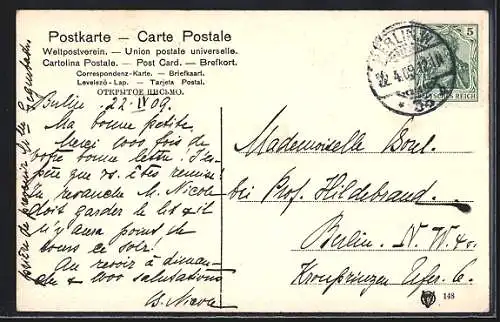 Postkarte — Carte Postale
Weltpostverein. — Union postale universelle.
Cartolina Postale. — Post Card. — Brefkort.
Correspondenz-Karte. — Briefkaart.
Levelező-Lap. — Tarjeta Postal.
ОТКРЫТОЕ ПИСЬМО.
Berlin. 22 IV 09.
Ma bonne petite,
Merci 1000 fois de
votre bonne lettre. J'es-
père que vs. êtes remise!
En revanche M. Nicole
doit garder le lit & il
n'y aura point de
cours ce soir!
Au revoir à diman-
che & 1000 salutations
S. Nicole
prière de prévenir
Mademoiselle
bei Prof. Hildebrand.
Berlin. N. W. 40.
Kronprinzen Ufer 6.
BERLIN N.W.
22.4.09
5
DEUTSCHES REICH
148